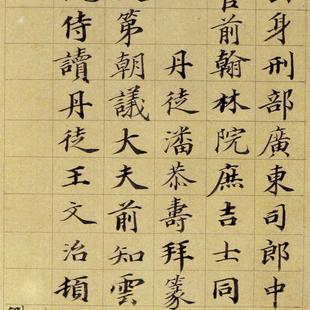 身刑部廣東司郎中
前翰林院庶吉士同
丹徒潘恭壽拜篆
第朝議大夫前知雲
侍讀丹徒王文治頓